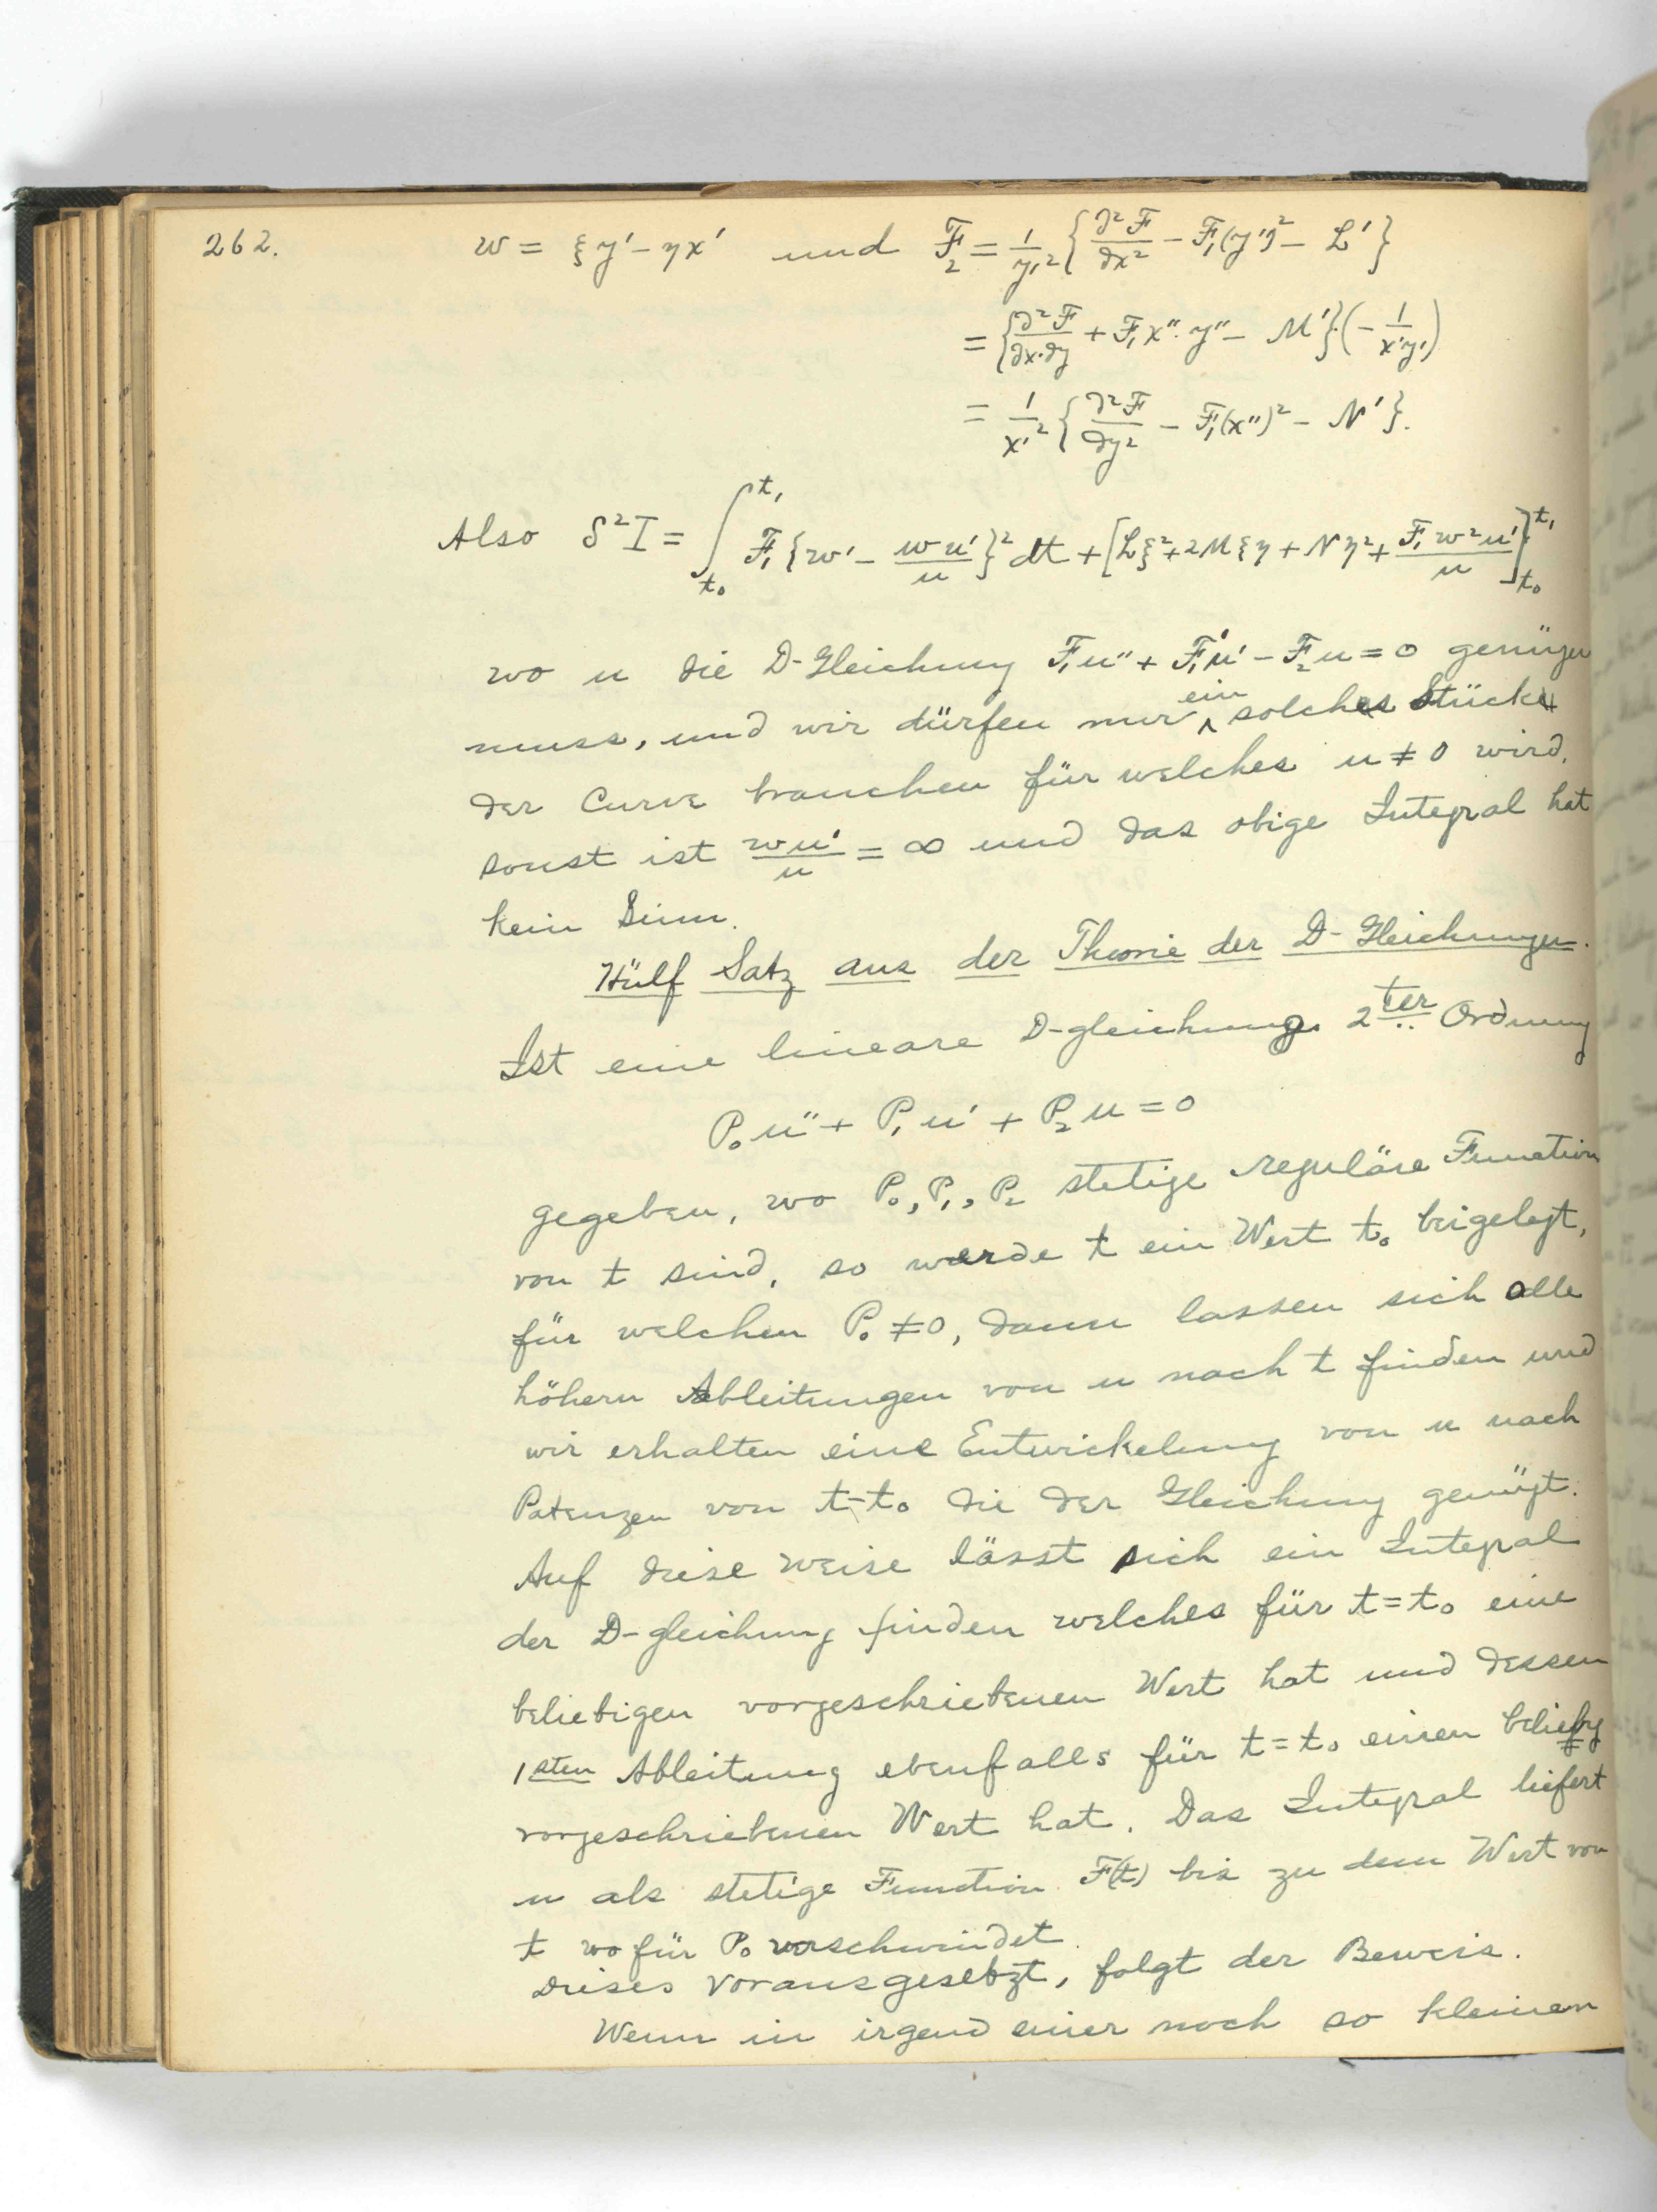 262. w = ξy′ − ηx′ und F₂ = 1/y′² { ∂²F/∂x² − F₁(y″)² − L′ }
= { ∂²F/∂x·∂y + F₁x″·y″ − M′ }·(− 1/x′y′)
= 1/x′² { ∂²F/∂y² − F₁(x″)² − N′ }.
Also δ²I = ∫_{t₀}^{t₁} F₁ { w′ − wu′/u }² dt + [ Lξ² + 2Mξη + Nη² + F₁w²u′/u ]_{t₀}^{t₁}
wo u die D-Gleichung F₁u″ + F₁′u′ − F₂u = 0 genügen
muss, und wir dürfen nur ein solches Stück
der Curve brauchen für welches u ≠ 0 wird,
sonst ist wu′/u = ∞ und das obige Integral hat
kein Sinn.
Hülf Satz aus der Theorie der D-Gleichungen.
Ist eine lineare D-gleichung 2ter Ordnung
P₀u″ + P₁u′ + P₂u = 0
gegeben, wo P₀, P₁, P₂ stetige reguläre Function
von t sind, so werde t ein Wert t₀ beigelegt,
für welchen P₀ ≠ 0, dann lassen sich alle
höhern Ableitungen von u nach t finden und
wir erhalten eine Entwickelung von u nach
Potenzen von t−t₀ die der Gleichung genügt.
Auf diese weise lässt sich ein Integral
der D-gleichung finden welches für t=t₀ eine
beliebigen vorgeschriebenen Wert hat und dessen
1sten Ableitung ebenfalls für t=t₀ einen beliebig
vorgeschriebenen Wert hat. Das Integral liefert
u als stetige Function F(t) bis zu dem Wert von
t wo für P₀ verschwindet.
Dieses vorausgesetzt, folgt der Beweis.
Wenn in irgend einer noch so kleinen